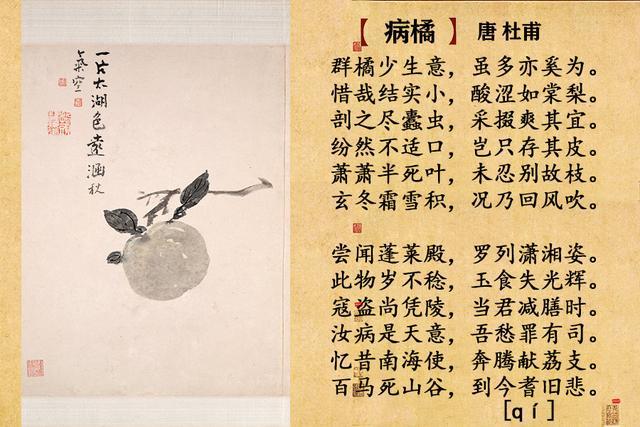 一片太湖色遠涵秋
氣空
【病橘】 唐 杜甫
群橘少生意，虽多亦奚为。
惜哉结实小，酸涩如棠梨。
剖之尽蠹虫，采掇爽其宜。
纷然不适口，岂只存其皮。
萧萧半死叶，未忍别故枝。
玄冬霜雪积，况乃回风吹。
尝闻蓬莱殿，罗列潇湘姿。
此物岁不稔，玉食失光辉。
寇盗尚凭陵，当君减膳时。
汝病是天意，吾愁罪有司。
忆昔南海使，奔腾献荔支。
百马死山谷，到今耆旧悲。
[qí]